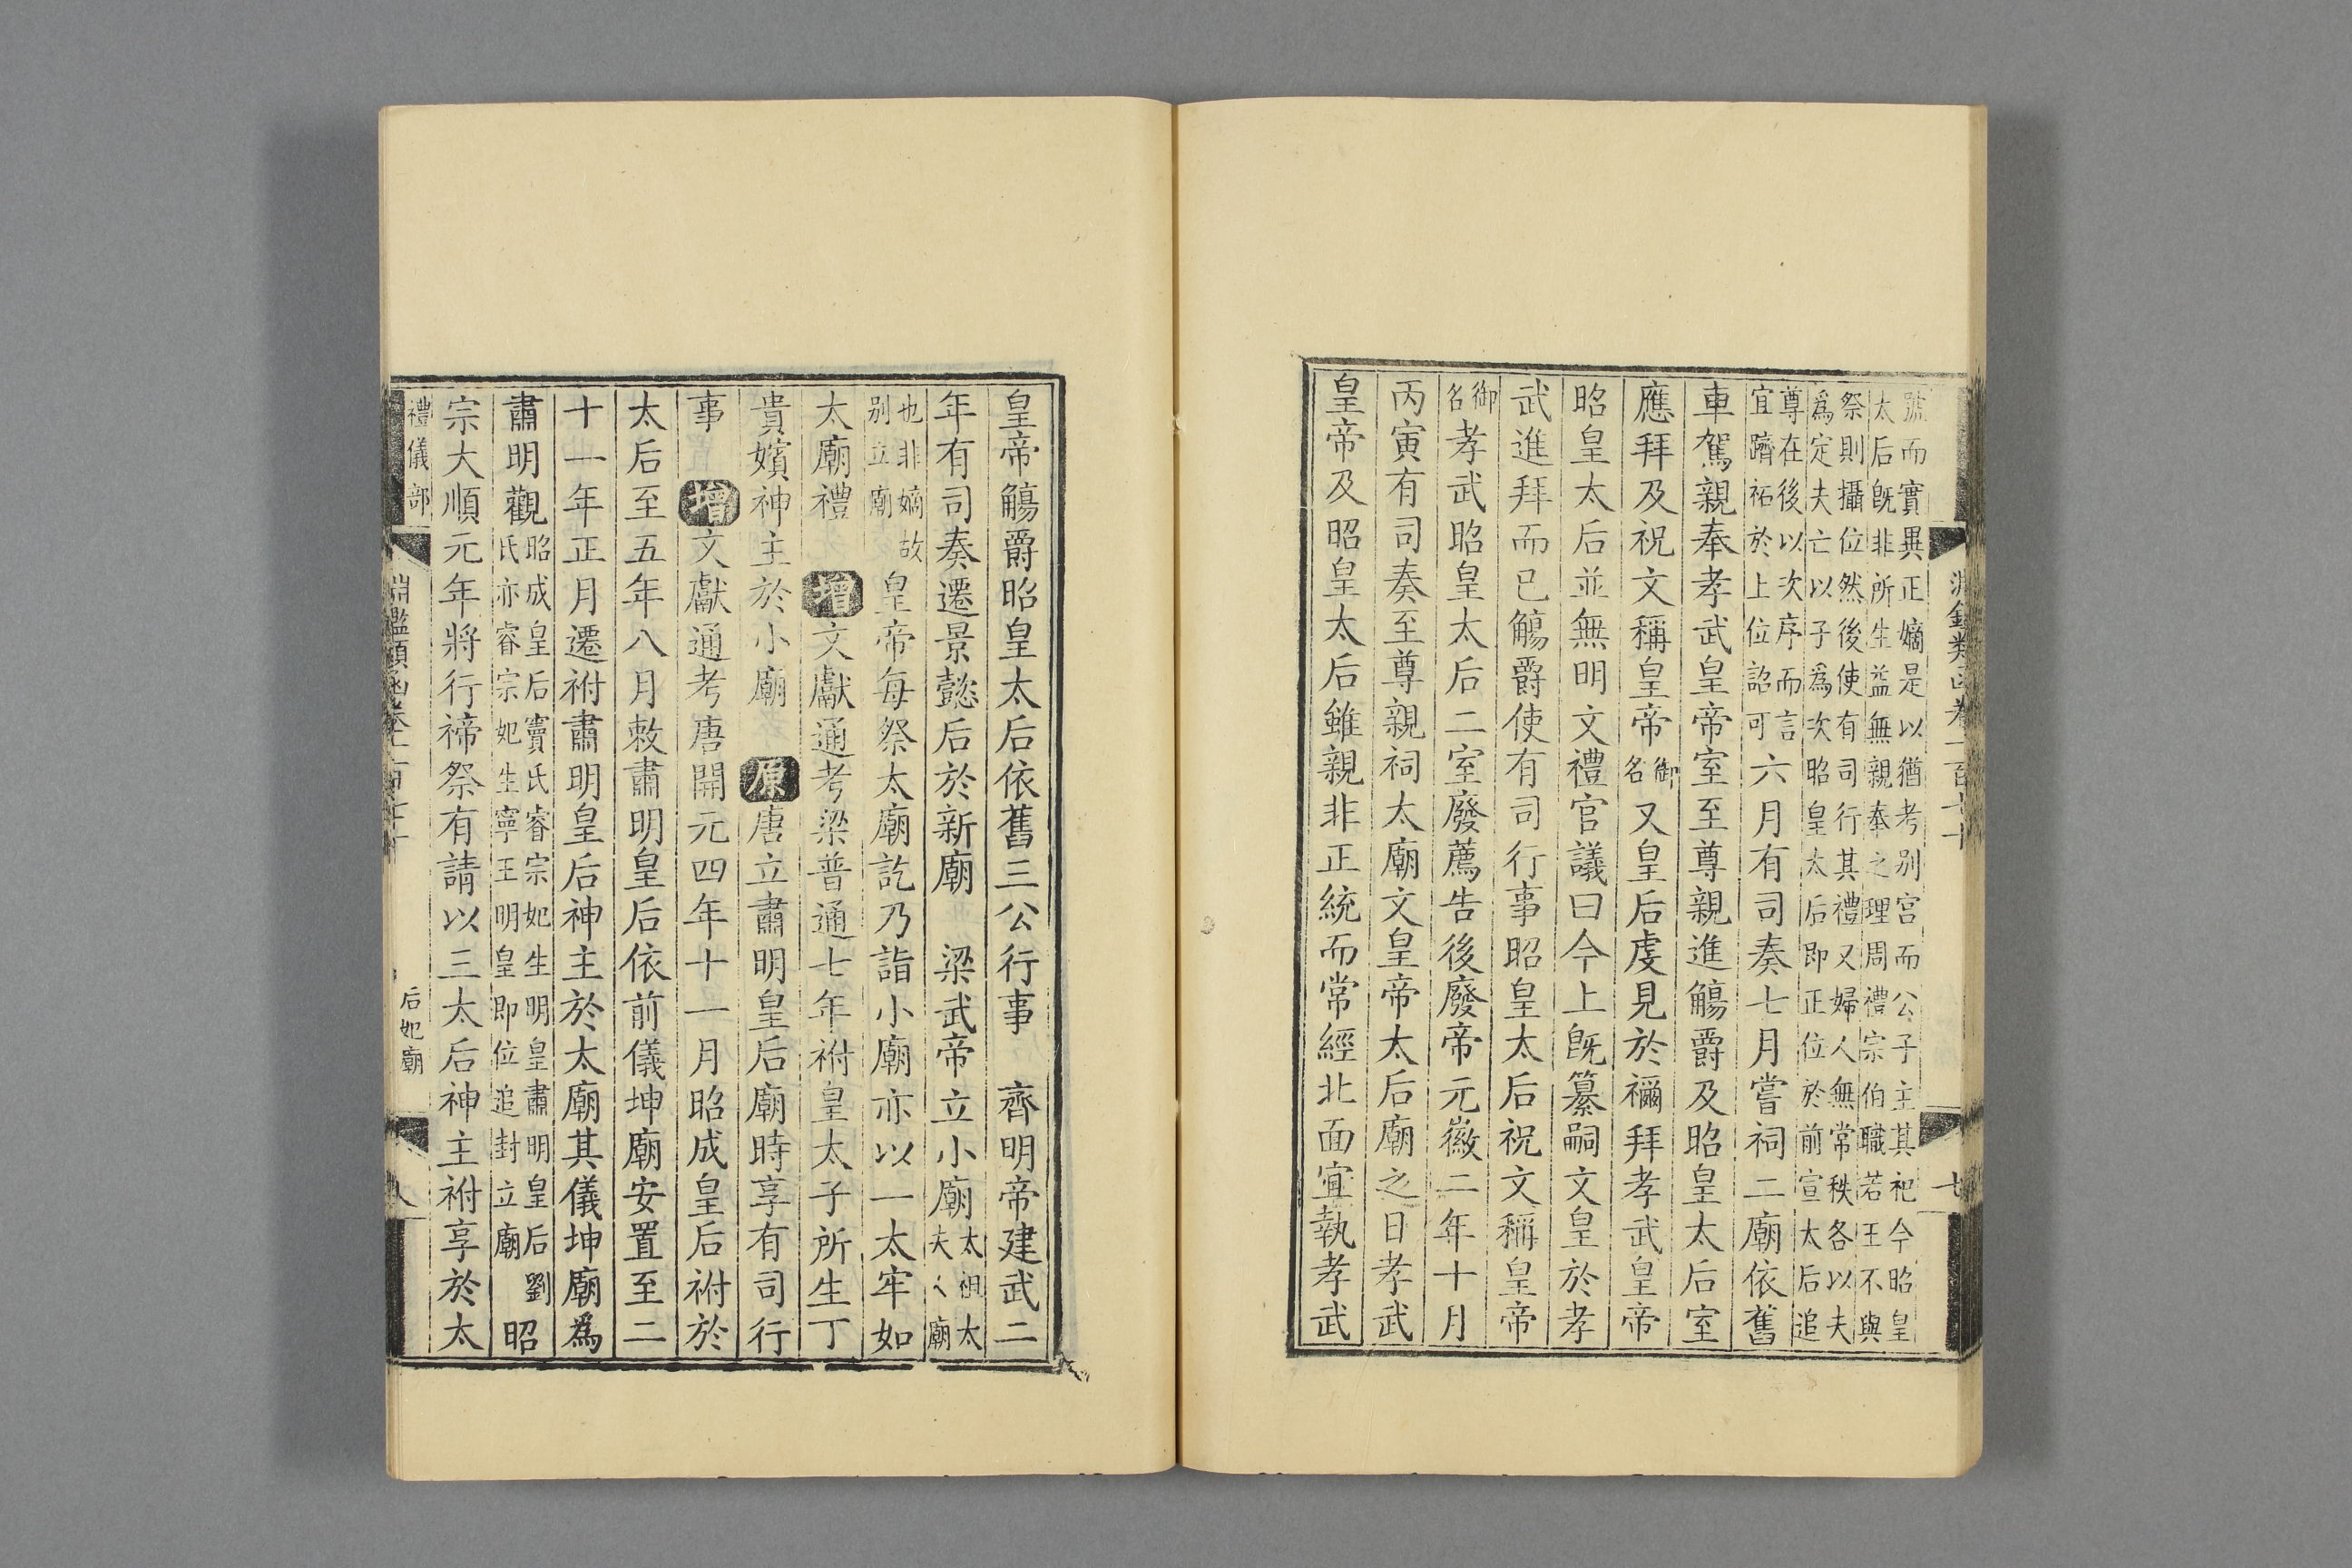 號而實異正嫡是以猶考别宫而公子主其祀今昭皇
太后既非所生益無親奉之理周禮宗伯職若王不與
祭則攝位然後使有司行其禮又婦人無常秩各以夫
爲定夫亡以子爲次昭皇太后即正位於前宣太后追
尊在後以次序而言
宜躋祏於上位詔可
六月有司奏七月嘗祠二廟依舊
車駕親奉孝武皇帝室至尊親進觴爵及昭皇太后室
應拜及祝文稱皇帝御名又皇后虔見於禰拜孝武皇帝
昭皇太后並無明文禮官議曰今上旣纂嗣文皇於孝
武進拜而已觴爵使有司行事昭皇太后祝文稱皇帝
御名孝武昭皇太后二室廢薦告後廢帝元徽二年十月
丙寅有司奏至尊親祠太廟文皇帝太后廟之日孝武
皇帝及昭皇太后雖親非正統而常經北面宜執孝武
皇帝觴爵昭皇太后依舊三公行事　齊明帝建武二
年有司奏遷景懿后於新廟　梁武帝立小廟太祖太夫人廟
也非嫡故别立廟皇帝每祭太廟訖乃詣小廟亦以一太牢如
太廟禮　增文獻通考梁普通七年祔皇太子所生丁
貴嬪神主於小廟　原唐立肅明皇后廟時享有司行
事　增文獻通考唐開元四年十一月昭成皇后祔於
太后至五年八月敕肅明皇后依前儀坤廟安置至二
十一年正月遷祔肅明皇后神主於太廟其儀坤廟爲
肅明觀昭成皇后竇氏睿宗妃生明皇肅明皇后劉氏亦睿宗妃生寧王明皇即位追封立廟昭
宗大順元年將行禘祭有請以三太后神主祔享於太
禮儀部
淵鑑類函卷一百七十
后妃廟
八